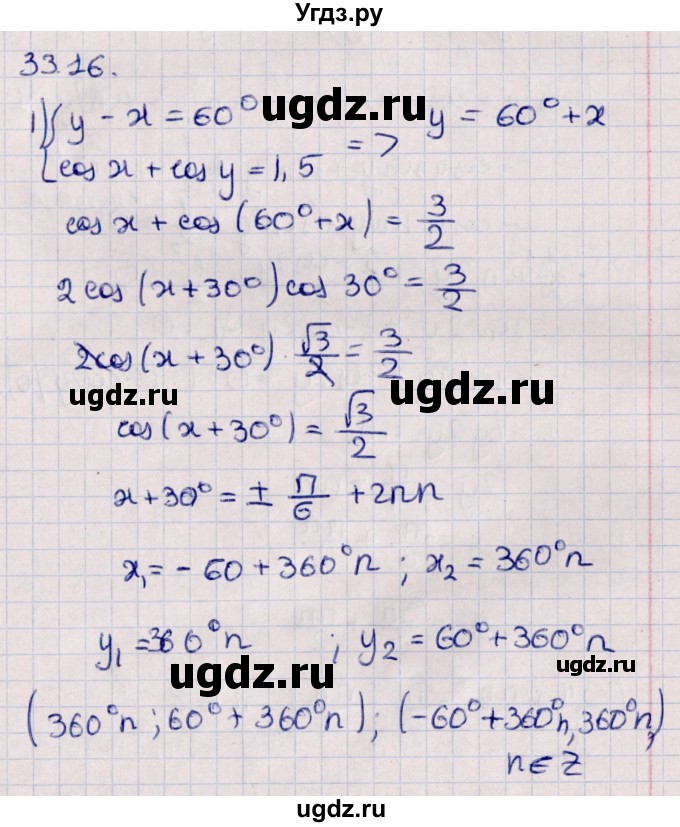 Угдз.ру
33.16.
1) { y - x = 60° => y = 60° + x
cos x + cos y = 1,5
ugdz.ru
ugdz.ru
cos x + cos (60° + x) = 3/2
2 cos (x + 30°) cos 30° = 3/2
2cos (x + 30°) · √3/2 = 3/2
ugdz.ru
ugdz.ru
cos (x + 30°) = √3/2
x + 30° = ± П/6 + 2πn
x₁ = - 60 + 360°n ; x₂ = 360°n
y₁ = 360°n ; y₂ = 60° + 360°n
ugdz.ru
ugdz.ru
(360°n ; 60° + 360°n) ; (-60° + 360°n, 360°n),
n ∈ Z
ugdz.ru